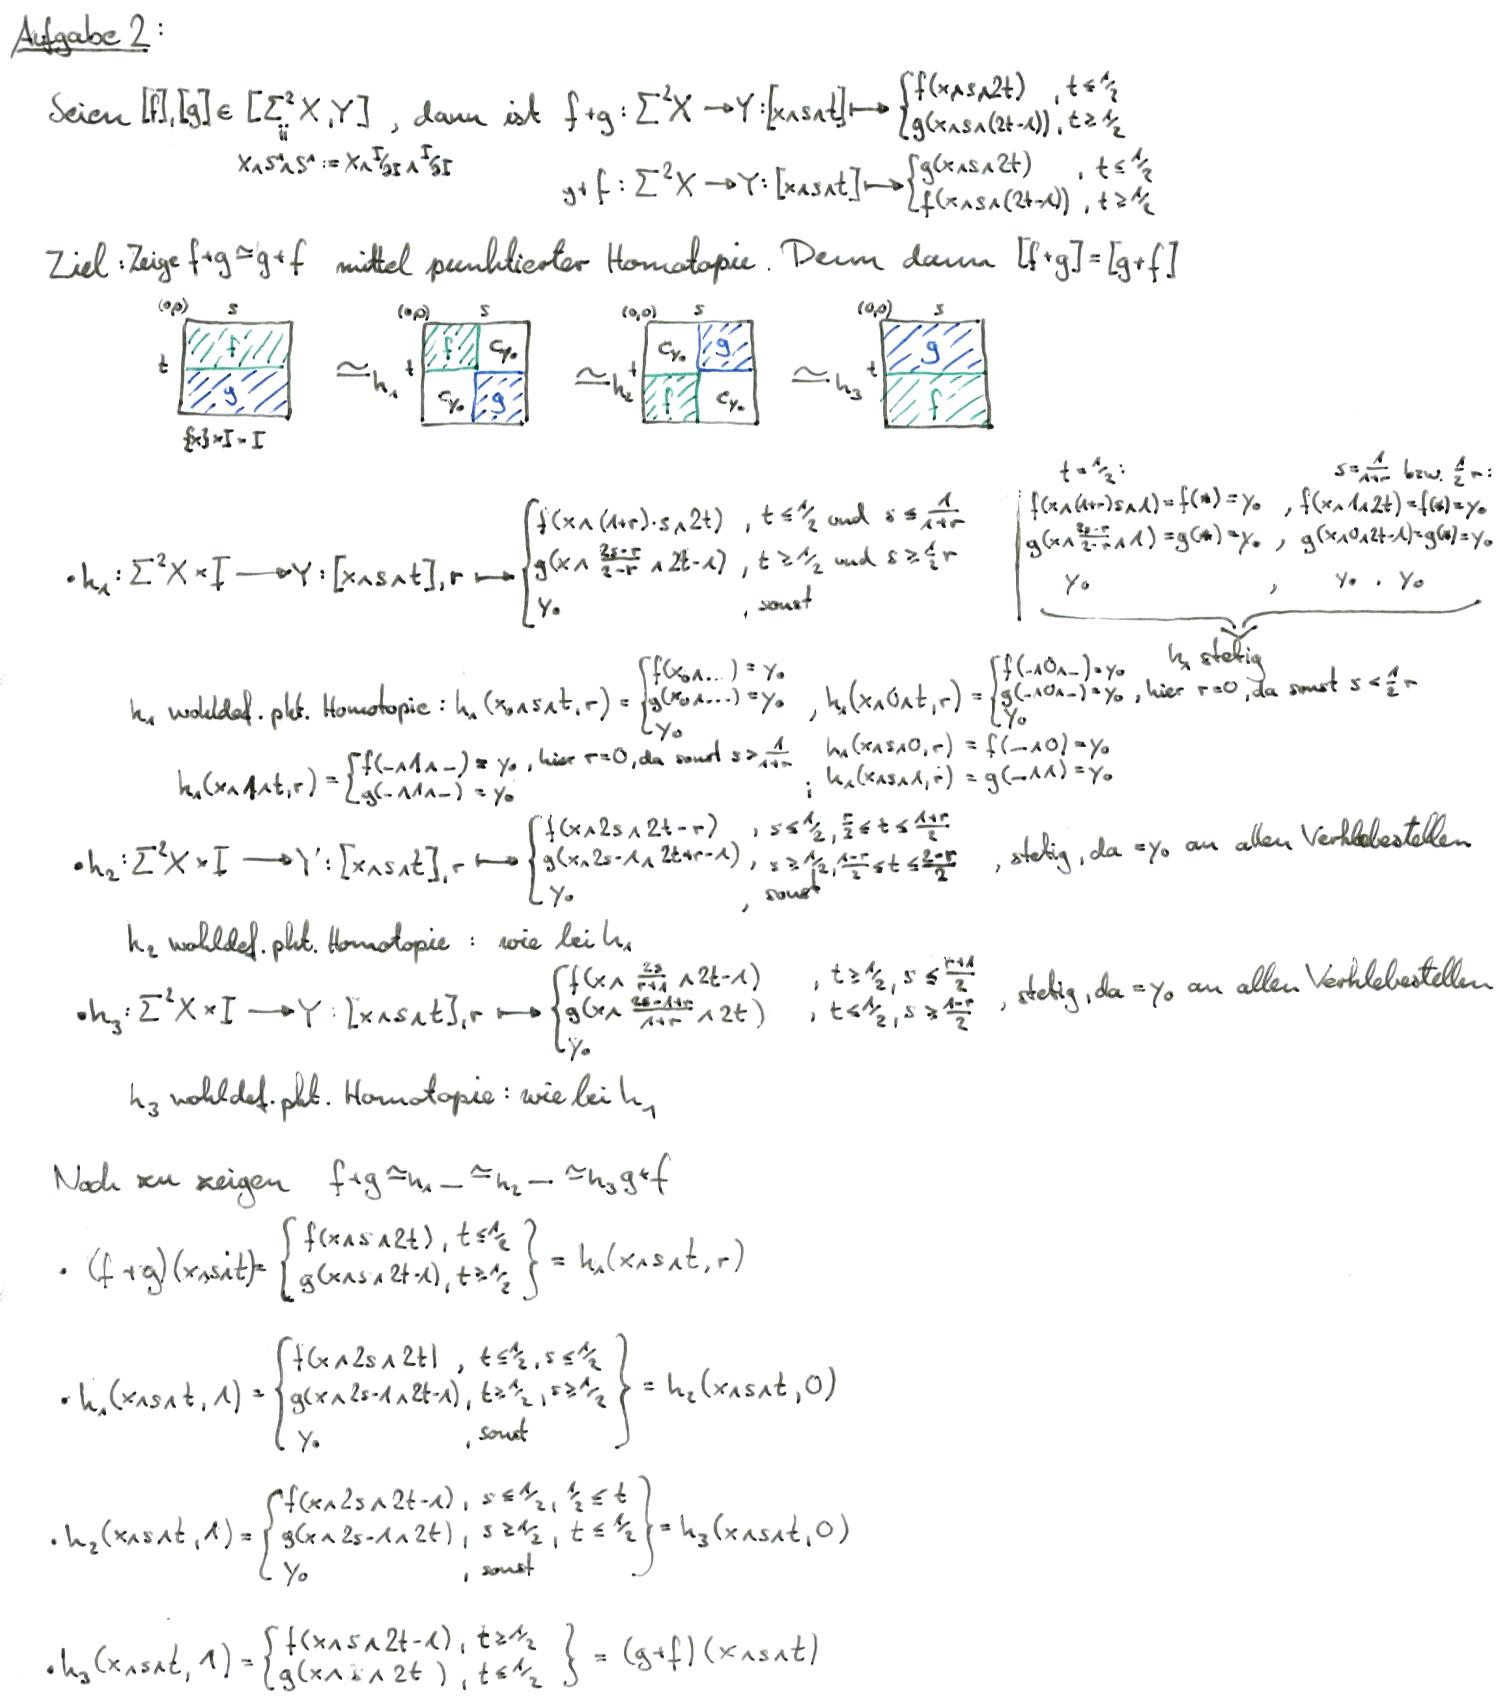 Aufgabe 2:
Seien [f],[g] ∈ [Σ²X,Y], dann ist f+g : Σ²X → Y : [x∧s∧t] ↦ { f(x∧s∧2t) , t ≤ 1/2
g(x∧s∧(2t-1)), t ≥ 1/2
X∧S¹∧S¹ := X∧I/∂I∧I/∂I
g+f : Σ²X → Y : [x∧s∧t] ↦ { g(x∧s∧2t) , t ≤ 1/2
f(x∧s∧(2t-1)) , t ≥ 1/2
Ziel: Zeige f+g ≃ g+f mittel punktierter Homotopie. Denn dann [f+g] = [g+f]
(0,0) s (0,0) s (0,0) s (0,0) s
t f ≃h₁ t f c_y₀ ≃h₂ t c_y₀ g ≃h₃ t g
g c_y₀ g f c_y₀ f
{x}×I×I
t = 1/2 : s = 1/(1+r) bzw. 1/2 r :
f(x∧(1+r)s∧1) = f(*) = y₀ , f(x∧1∧2t) = f(*) = y₀
g(x∧(2s-r)/(2-r)∧1) = g(*) = y₀ , g(x∧0∧2t-1) = g(*) = y₀
y₀ , y₀ . y₀
h₁ stetig
• h₁ : Σ²X × I → Y : [x∧s∧t], r ↦ { f(x∧(1+r)·s∧2t) , t ≤ 1/2 und s ≤ 1/(1+r)
g(x∧(2s-r)/(2-r)∧2t-1) , t ≥ 1/2 und s ≥ 1/2 r
y₀ , sonst
h₁ wohldef. pkt. Homotopie : h₁(x₀∧s∧t, r) = { f(x₀∧...) = y₀
g(x₀∧...) = y₀
y₀
, h₁(x∧0∧t, r) = { f(-∧0∧-) = y₀
g(-∧0∧-) = y₀ , hier r=0, da sonst s < 1/2 r
y₀
h₁(x∧1∧t, r) = { f(-∧1∧-) = y₀ , hier r=0, da sonst s > 1/(1+r)
g(-∧1∧-) = y₀
; h₁(x∧s∧0, r) = f(-∧0) = y₀
h₁(x∧s∧1, r) = g(-∧1) = y₀
• h₂ : Σ²X × I → Y : [x∧s∧t], r ↦ { f(x∧2s∧2t-r) , s ≤ 1/2, r/2 ≤ t ≤ (1+r)/2
g(x∧2s-1∧2t+r-1) , s ≥ 1/2, (1-r)/2 ≤ t ≤ (2-r)/2
y₀ , sonst
, stetig, da = y₀ an allen Verklebestellen
h₂ wohldef. pkt. Homotopie : wie bei h₁
• h₃ : Σ²X × I → Y : [x∧s∧t], r ↦ { f(x∧2s/(r+1)∧2t-1) , t ≥ 1/2, s ≤ (r+1)/2
g(x∧(2s-1+r)/(1+r)∧2t) , t ≤ 1/2, s ≥ (1-r)/2
y₀
, stetig, da = y₀ an allen Verklebestellen
h₃ wohldef. pkt. Homotopie : wie bei h₁
Noch zu zeigen f+g ≃h₁ _ ≃h₂ _ ≃h₃ g+f
• (f+g)(x∧s∧t) = { f(x∧s∧2t), t ≤ 1/2
g(x∧s∧2t-1), t ≥ 1/2 } = h₁(x∧s∧t, r)
• h₁(x∧s∧t, 1) = { f(x∧2s∧2t) , t ≤ 1/2, s ≤ 1/2
g(x∧2s-1∧2t-1), t ≥ 1/2, s ≥ 1/2
y₀ , sonst } = h₂(x∧s∧t, 0)
• h₂(x∧s∧t, 1) = { f(x∧2s∧2t-1), s ≤ 1/2, 1/2 ≤ t
g(x∧2s-1∧2t), s ≥ 1/2, t ≤ 1/2
y₀ , sonst } = h₃(x∧s∧t, 0)
• h₃(x∧s∧t, 1) = { f(x∧s∧2t-1), t ≥ 1/2
g(x∧s∧2t ), t ≤ 1/2 } = (g+f)(x∧s∧t)